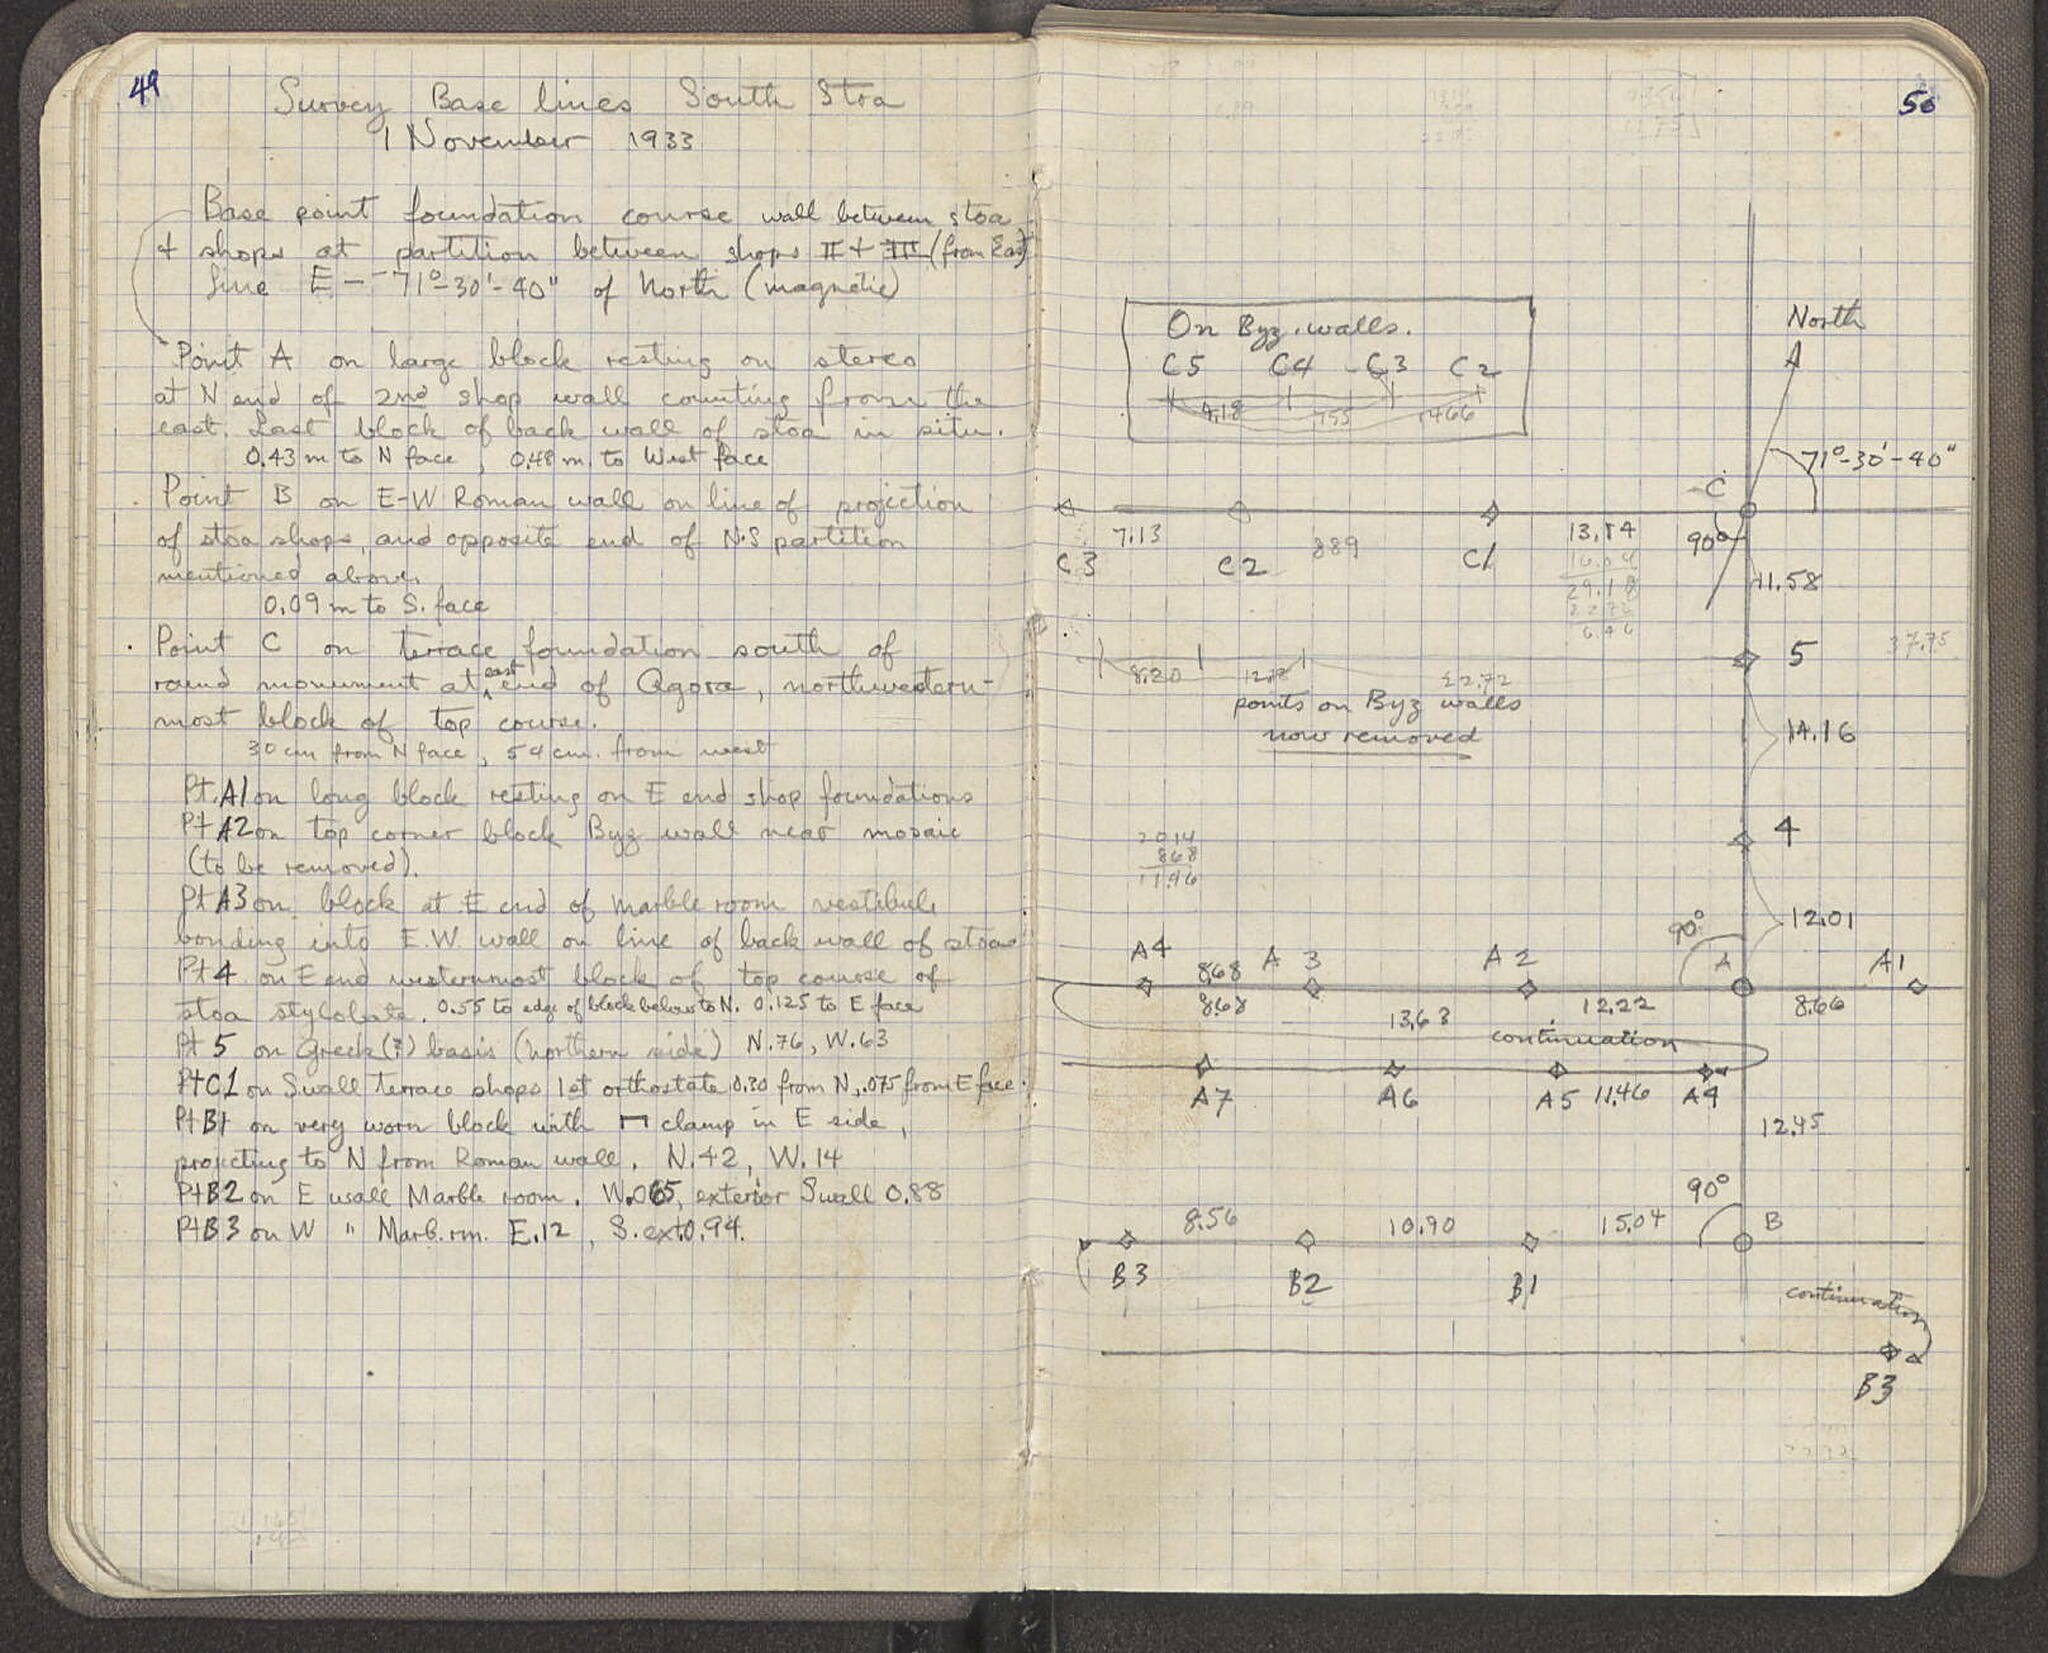 49
Survey Base lines South Stoa
1 November 1933
Base point foundation course wall between stoa
+ shops at partition between shops II + III (from East)
line E - 71°-30'-40" of North (magnetic)
Point A on large block resting on stereo
at N end of 2nd shop wall counting from the
east. Last block of back wall of stoa in situ.
0.43 m to N face, 0.48 m. to West face
Point B on E-W Roman wall on line of projection
of stoa shops, and opposite end of N-S partition
mentioned above.
0.09 m to S. face
Point C on terrace foundation south of
round monument at east end of Agora, northwestern-
most block of top course.
30 cm from N face, 54 cm. from west
Pt. A1 on long block resting on E end shop foundations
Pt A2 on top corner block Byz wall near mosaic
(to be removed).
Pt A3 on block at E end of marble room vestibule
bonding into E.W. wall on line of back wall of stoa
Pt 4 on E end westernmost block of top course of
stoa stylobate. 0.55 to edge of block below to N. 0.125 to E face
Pt 5 on Greek (?) basis (northern side) N.76, W.63
Pt C1 on S wall terrace shops 1st orthostate 0.30 from N, .075 from E face.
Pt B1 on very worn block with ⊓ clamp in E side,
projecting to N from Roman wall. N.42, W.14
Pt B2 on E wall Marble room. W.065, exterior S wall 0.88
Pt B3 on W " Marb. rm. E.12, S. ext. 0.94.
50
On Byz. walls.
C5 C4 C3 C2
4.18 755 1466
North
71°-30'-40"
C
7.13 889 13.54 90°
C3 C2 C1
29.18
11.58
5
37.75
8.20 22.72
points on Byz walls
now removed
14.16
2014
868
1146
4
12.01
90°
A4 868 A3 A2 A A1
8.68 13.63 12.22 8.66
continuation
A7 A6 A5 11.46 A4
12.45
90°
8.56 10.90 15.04 B
B3 B2 B1
continuation
B3